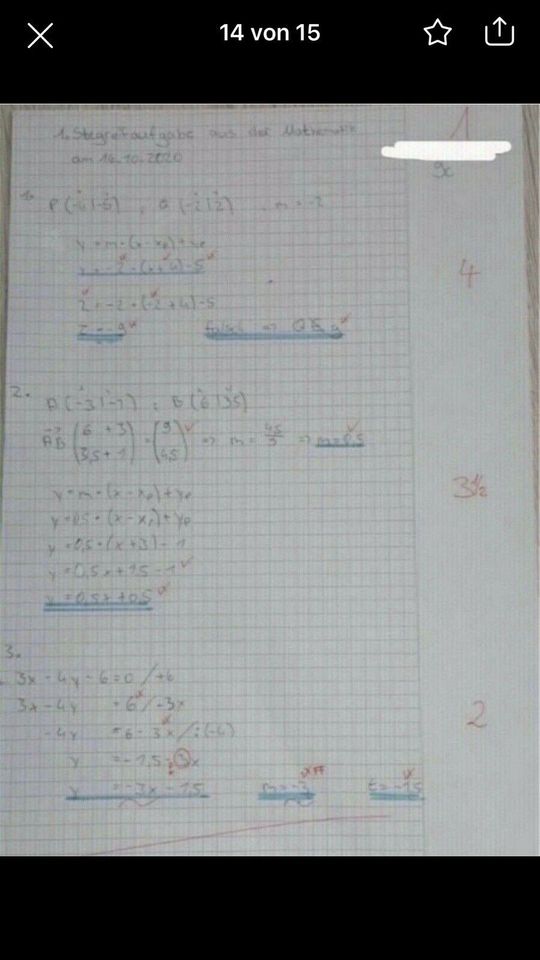 14 von 15
1. Stegreifaufgabe aus der Mathematik
am 16.10.2020
1
9c
1. P(-4|-5) ; Q(-2|2) , m = -2
y = m · (x - xp) + yp
y = -2 · (x + 4) - 5
2 = -2 · (-2 + 4) - 5
2 = -9 falsch => Q ∉ g
4
2. A(-3|-1) ; B(6|3,5)
AB (6 + 3 / 3,5 + 1) = (9 / 4,5) => m = 4,5/9 => m = 0,5
y = m · (x - xp) + yp
y = 0,5 · (x - xp) + yp
y = 0,5 · (x + 3) - 1
y = 0,5x + 1,5 - 1
y = 0,5x + 0,5
3 1/2
3.
3x - 4y - 6 = 0 / +6
3x - 4y = 6 / -3x
-4y = 6 - 3x / : (-4)
y = -1,5 - 3x
y = -3x - 1,5 m = -3 t = -1,5
2